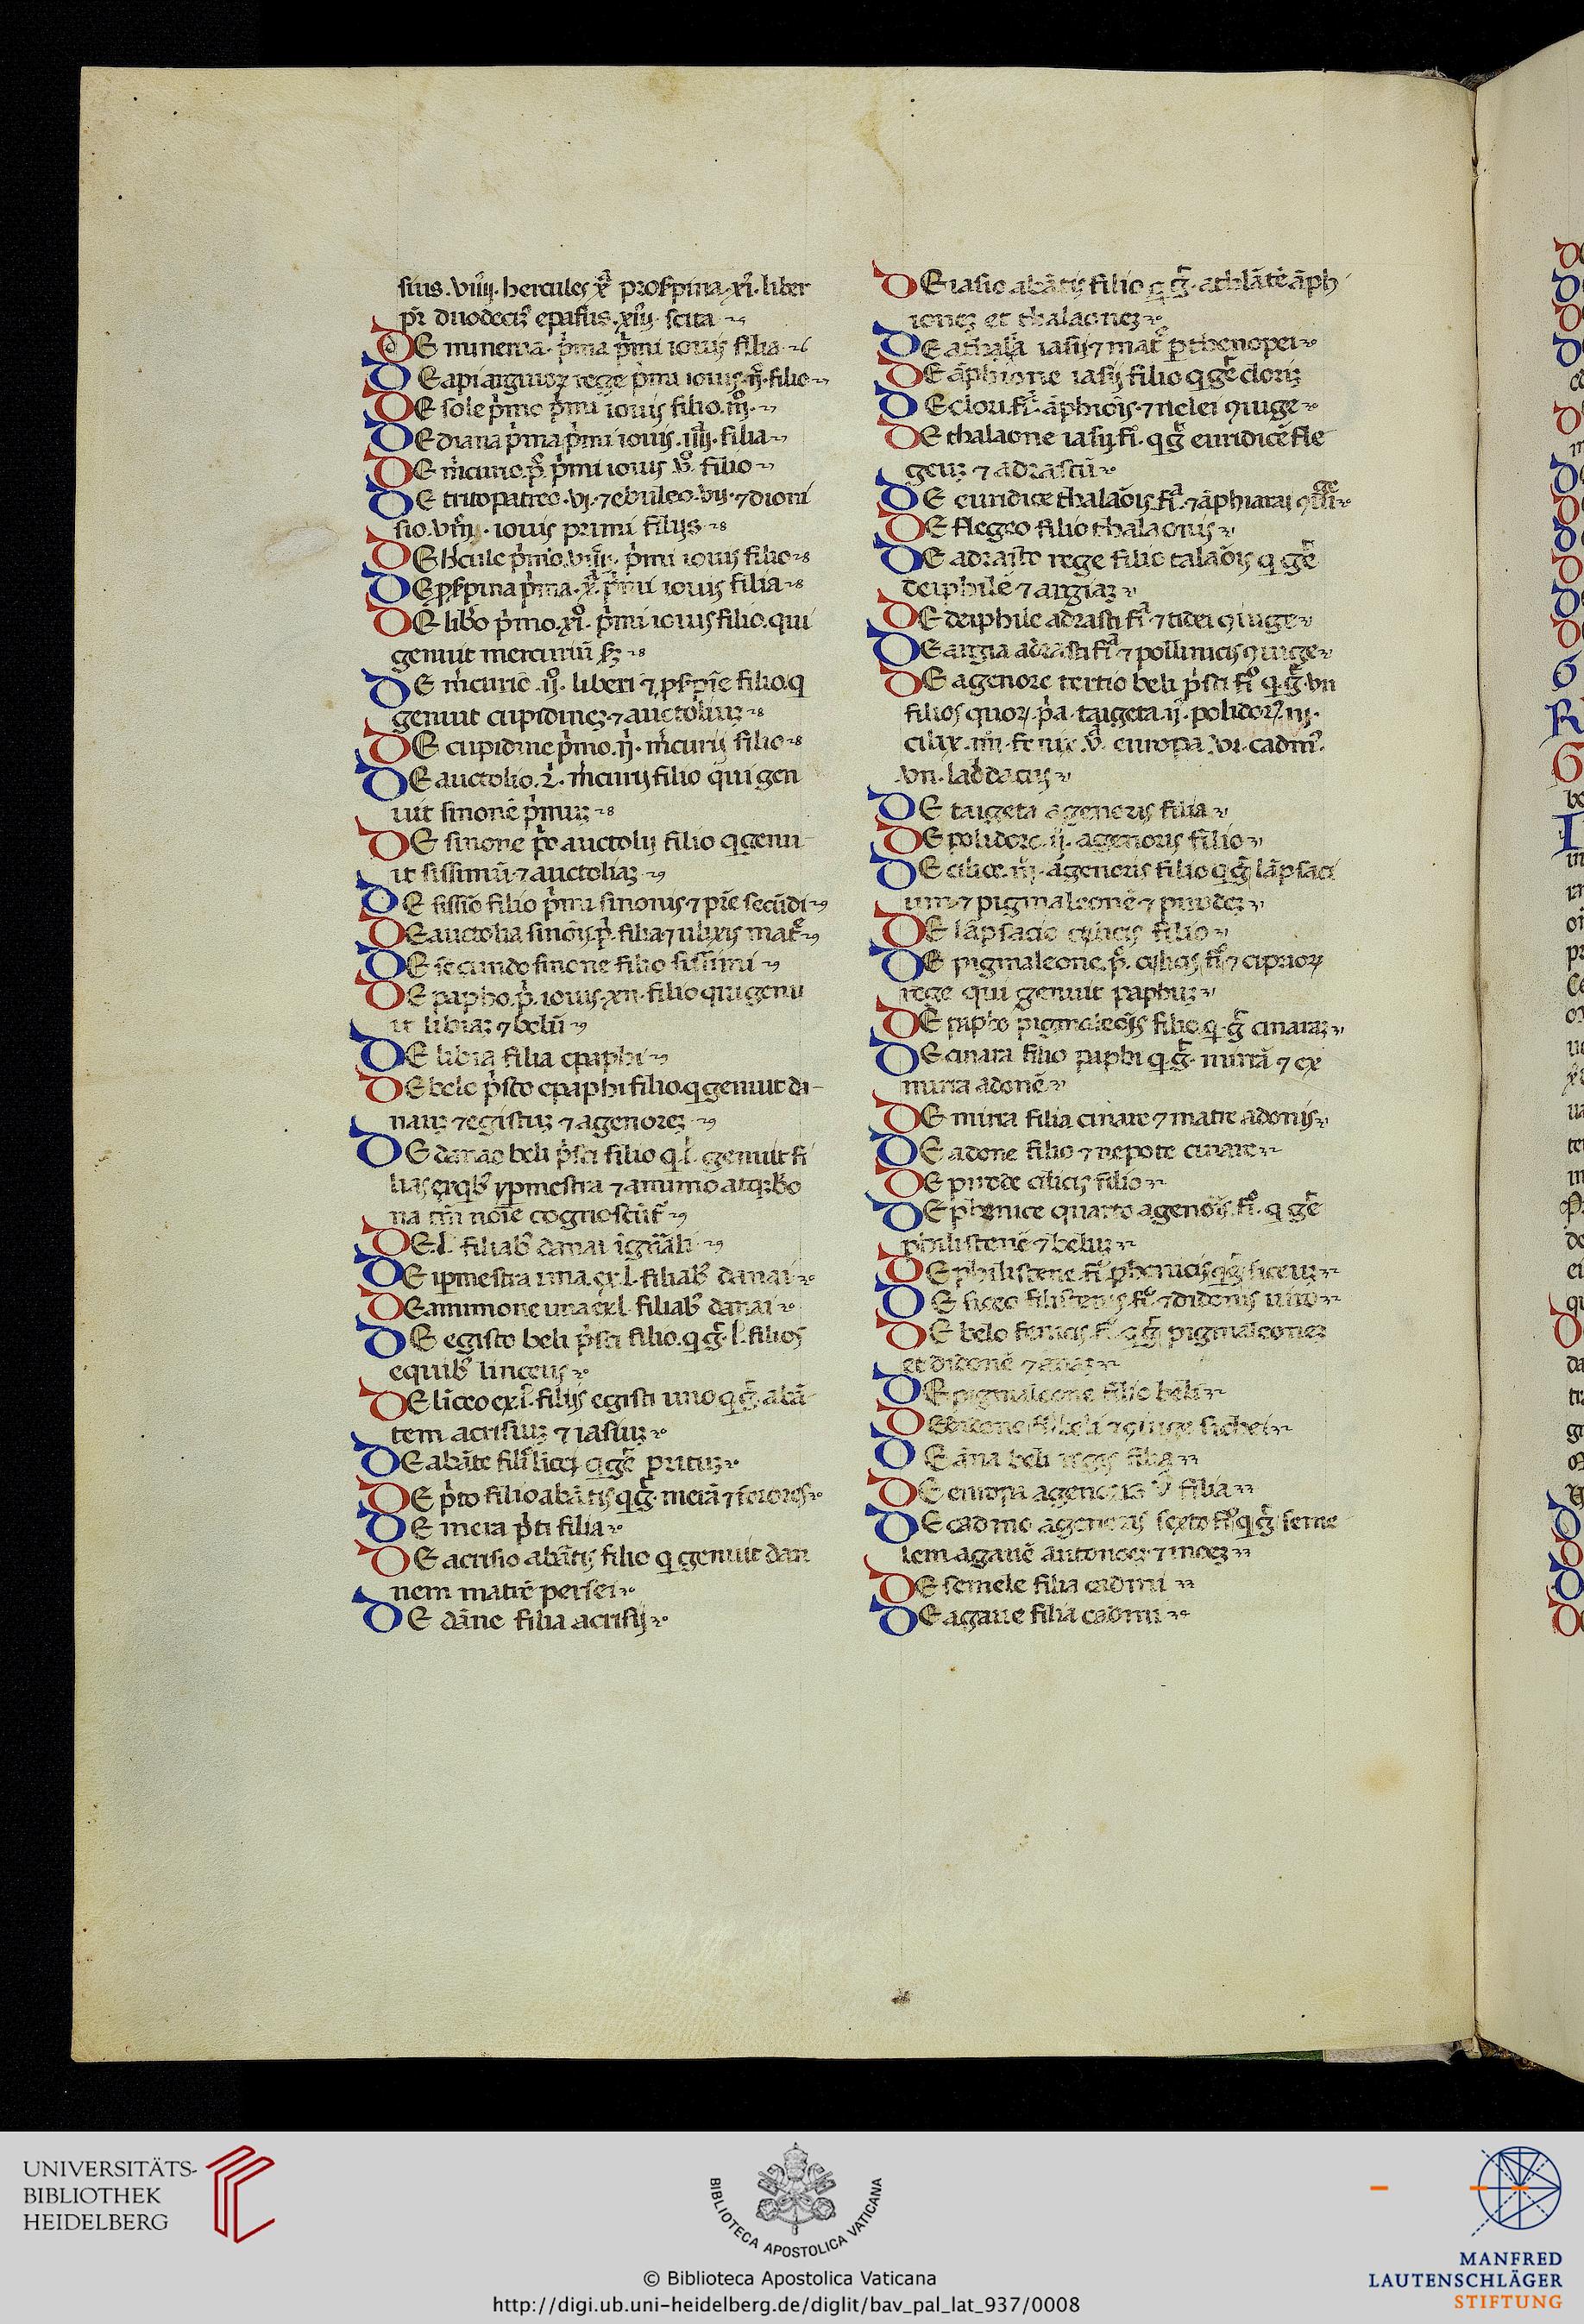 sius .viiij. hercules xᵃ proserpina .xiº. liber
pr̄ duodeciꝫ epafus .xiij. scita
DE minerua. p̍ma p̍mi iouis filia
DE api arguioꝝ rege p̍mi iouis .ijº. filio
DE sole p̍mo p̍mi iouis filio .iijº.
DE diana p̍ma p̍mi iouis .iiijᵃ. filia
DE m̍curio .pº. p̍mi iouis .vº. filio
DE tritopatreo .vj. ⁊ ebuleo .vij. ⁊ dioni
sio .viij. iouis primi filijs
DE hercule p̍mo .viiij. p̍mi iouis filio
DE p̱ſ̱pina p̍ma .xᵃ. p̍mi iouis filia
DE lib̄o p̍mo .xiº. p̍mi iouis filio. qui
genuit mercuriū ſꝫ
DE m̍curio .ijº. liberi ⁊ p̱ſ̱pīe filio. q
genuit cupidineꝫ ⁊ auctoliuꝫ
DE cupidine p̍mo .ij. m̍curij filio
DE auctolio .2. m̍curij filio qui gen
uit sinonē p̍muꝫ
DE sinone p̍º auctolij filio q genu
it sissimū ⁊ auctoliaꝫ
DE sissimo filio p̍mi sinonis ⁊ pr̄e secūdi
DE auctolia sinōis p̍. filia ⁊ ulixis matr̄
DE secundo sinone filio sissimi
DE papho .p̍. iouis .xii. filio qui genu
it libiaꝫ ⁊ belū
DE libia filia epaphi
DE belo p̍sco epaphi filio. q genuit da
nauꝫ ⁊ egistuꝫ ⁊ agenoreꝫ
DE danao beli p̍sci filio q .l. genuit fi
lias ex qb̄ ypmestra ⁊ amimo atqꝫ bo
na tm̄ noīe cognoscūt̄
DE .l. filiab̄ danai ī gn̄ali
DE ipmestra una .ex .l. filiab̄ danai
DE amimone una ex .l. filiab̄ danai
DE egisto beli p̍sci filio. q. g̅. l. filios
e quib̄ linceus
DE līceo ex .l. filijs egisti uno q g̅. abā
tem acrisiuꝫ ⁊ iasiuꝫ
DE abāte filiº līcei q gē prituꝫ
DE p̍to filio abātis q g̅. merā ⁊ sorores
DE mera p̍ti filia
DE acrisio abātis filio q genuit dan
nem matrē persei
DE dāne filia acrisij
DE iasio abātis filio q g̅. athlātē āph
ioneꝫ et thalaoneꝫ
DE athalā iasij ⁊ matr̄ p̱thenopei
DE āphione iasij filio q gē cloriꝫ
DE clori .fᵃ. āphiōis. ⁊ nelei ꝯiuge
DE thalaone iasij fiº. q g̅ euridicē fle
geuꝫ ⁊ adrastū
DE euridice thalaōis fiᵃ. ⁊ āphiarai ꝯiuge
DE flegeo filio thalaonis
DE adrasto rege filio talaōis q gē
deiphilē ⁊ argiaꝫ
DE deiphile adrasti fiᵃ ⁊ tidei ꝯiuge
DE argia adrasti fiᵃ ⁊ pollinicis ꝯiuge
DE agenore tertio beli p̍sci fiº q. g̅. vii
filios quoꝝ. p̍a. taigeta .ij. polidorꝰ. iij.
cilix. iiij. fenix .v. europa .vi. cadmꝰ.
.vii. labdacus
DE taigeta agenoris filia
DE polidoro .ij. agenoris filio
DE cilice .iij. agenoris filio q g̅ lāpsaci
um ⁊ pigmaleonē ⁊ pirodeꝫ
DE lāpsacio cilicis filio
DE pigmaleone .p̍. cilicis fiº ⁊ ciprioꝝ
rege qui genuit paphuꝫ
DE papho pigmaleōis filio q. g̅ cinaraꝫ
DE cinara filio paphi q. g̅. mirrā ⁊ ex
mirra adonē
DE mirra filia cinare ⁊ matre adonis
DE adone filio ⁊ nepote cinare
DE pirode cilicis filio
DE phenice quarto agenoris fiº. q gē
philistenē ⁊ beluꝫ
DE philistene .fiº. phenicis q g̅ siceuꝫ
DE siceo filistenis fiº. ⁊ didonis uiro
DE belo fenicis fiº q g̅ pigmaleoneꝫ
et didonē ⁊ ānaꝫ
DE pigmaleone filio beli
DE didone fiᵃ beli ⁊ ꝯiuge sichei
DE āna beli regis filia
DE europa agenoris .v. filia
DE cadmo agenoris sexto fiº q g̅ seme
lem agauē autonoeꝫ ⁊ inoeꝫ
DE semele filia cadmi
DE agaue filia cadmi
UNIVERSITÄTS-
BIBLIOTHEK
HEIDELBERG
BIBLIOTECA APOSTOLICA VATICANA
© Biblioteca Apostolica Vaticana
http://digi.ub.uni-heidelberg.de/diglit/bav_pal_lat_937/0008
MANFRED
LAUTENSCHLÄGER
STIFTUNG